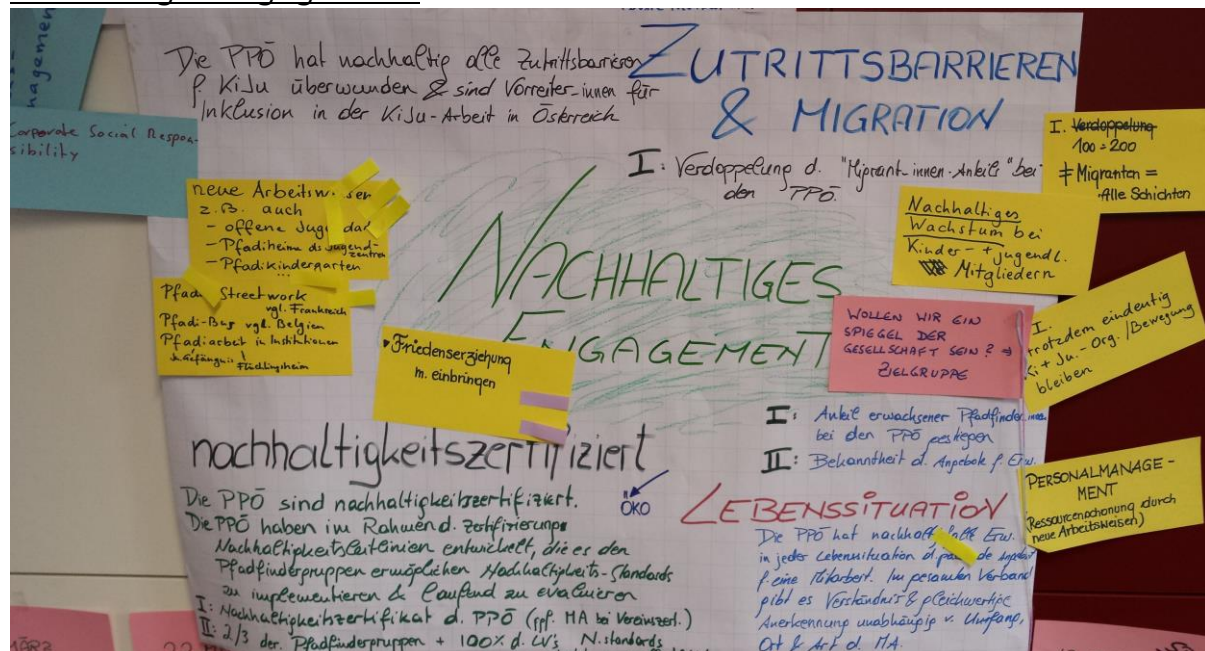 Corporate Social Respon-
sibility
Die PPÖ hat nachhaltig alle Zutrittsbarrieren
f. KiJu überwunden & sind Vorreiter-innen für
Inklusion in der KiJu-Arbeit in Österreich
ZUTRITTSBARRIEREN
& MIGRATION
I: Verdoppelung d. "Migrant-innen-Anteils" bei
den PPÖ.
I. Verdoppelung
100 = 200
≠ Migranten =
Alle Schichten
neue Arbeitsweisen
z.B. auch
- offene Jugendar
- Pfadiheime als Jugend-
zentren
- Pfadikindergarten
...
Pfadi Streetwork
vgl. Frankreich
Pfadi-Bus vgl. Belgien
Pfadiarbeit in Institutionen
Gefängnis
Flüchtlingsheim
NACHHALTIGES
ENGAGEMENT
Friedenserziehung
m. einbringen
Nachhaltiges
Wachstum bei
Kinder- + Jugendl.
Mitgliedern
WOLLEN WIR EIN
SPIEGEL DER
GESELLSCHAFT SEIN? →
ZIELGRUPPE
I.
trotzdem eindeutig
Ki + Ju.- Org./Bewegung
bleiben
I: Anteil erwachsener Pfadfinder
bei den PPÖ gestiegen
II: Bekanntheit d. Angebote f. Erw.
PERSONALMANAGE-
MENT
(Ressourcenschonung durch
neue Arbeitsweisen)
nachhaltigkeitszertifiziert
ÖKO
Die PPÖ sind nachhaltigkeitszertifiziert.
Die PPÖ haben im Rahmen d. Zertifizierung
Nachhaltigkeitsleitlinien entwickelt, die es den
Pfadfindergruppen ermöglichen Nachhaltigkeits-Standards
zu implementieren & laufend zu evaluieren
I: Nachhaltigkeitszertifikat d. PPÖ (ggf. MA bei Vereinszert.)
II: 2/3 der Pfadfindergruppen + 100% d. LV's N.standards
LEBENSSITUATION
Die PPÖ hat nachhaltig Erw.
in jeder Lebenssituation d. passende Angebot
f. eine Mitarbeit. Im gesamten Verband
gibt es Verständnis & gleichwertige
Anerkennung unabhängig v. Umfang,
Ort & Art d. MA.
MÄRZ